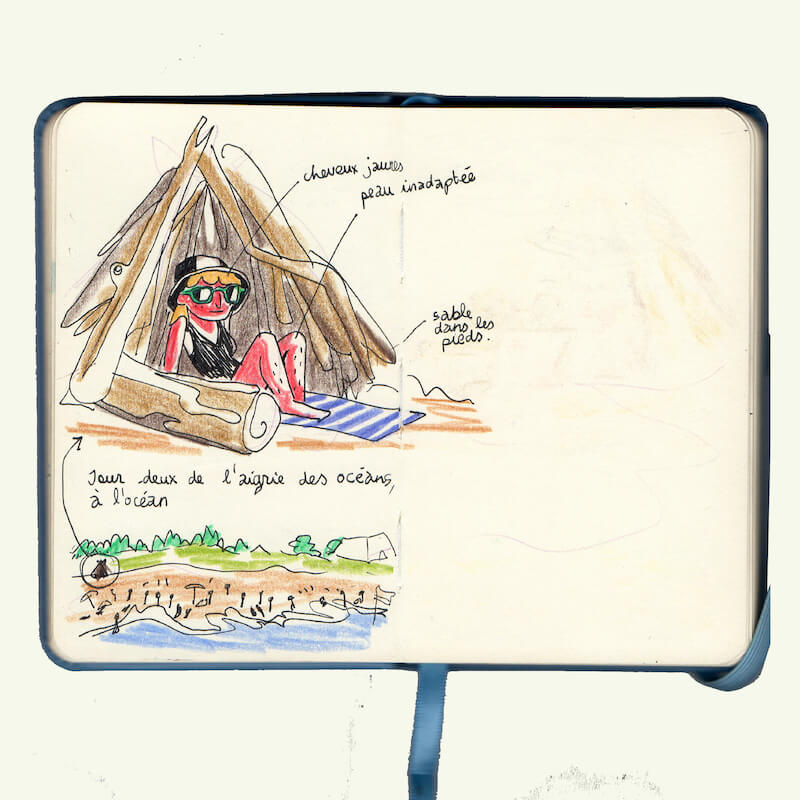 cheveux jaunes
peau inadaptée
sable
dans les
pieds.
Jour deux de l'aigrie des océans,
à l'océan